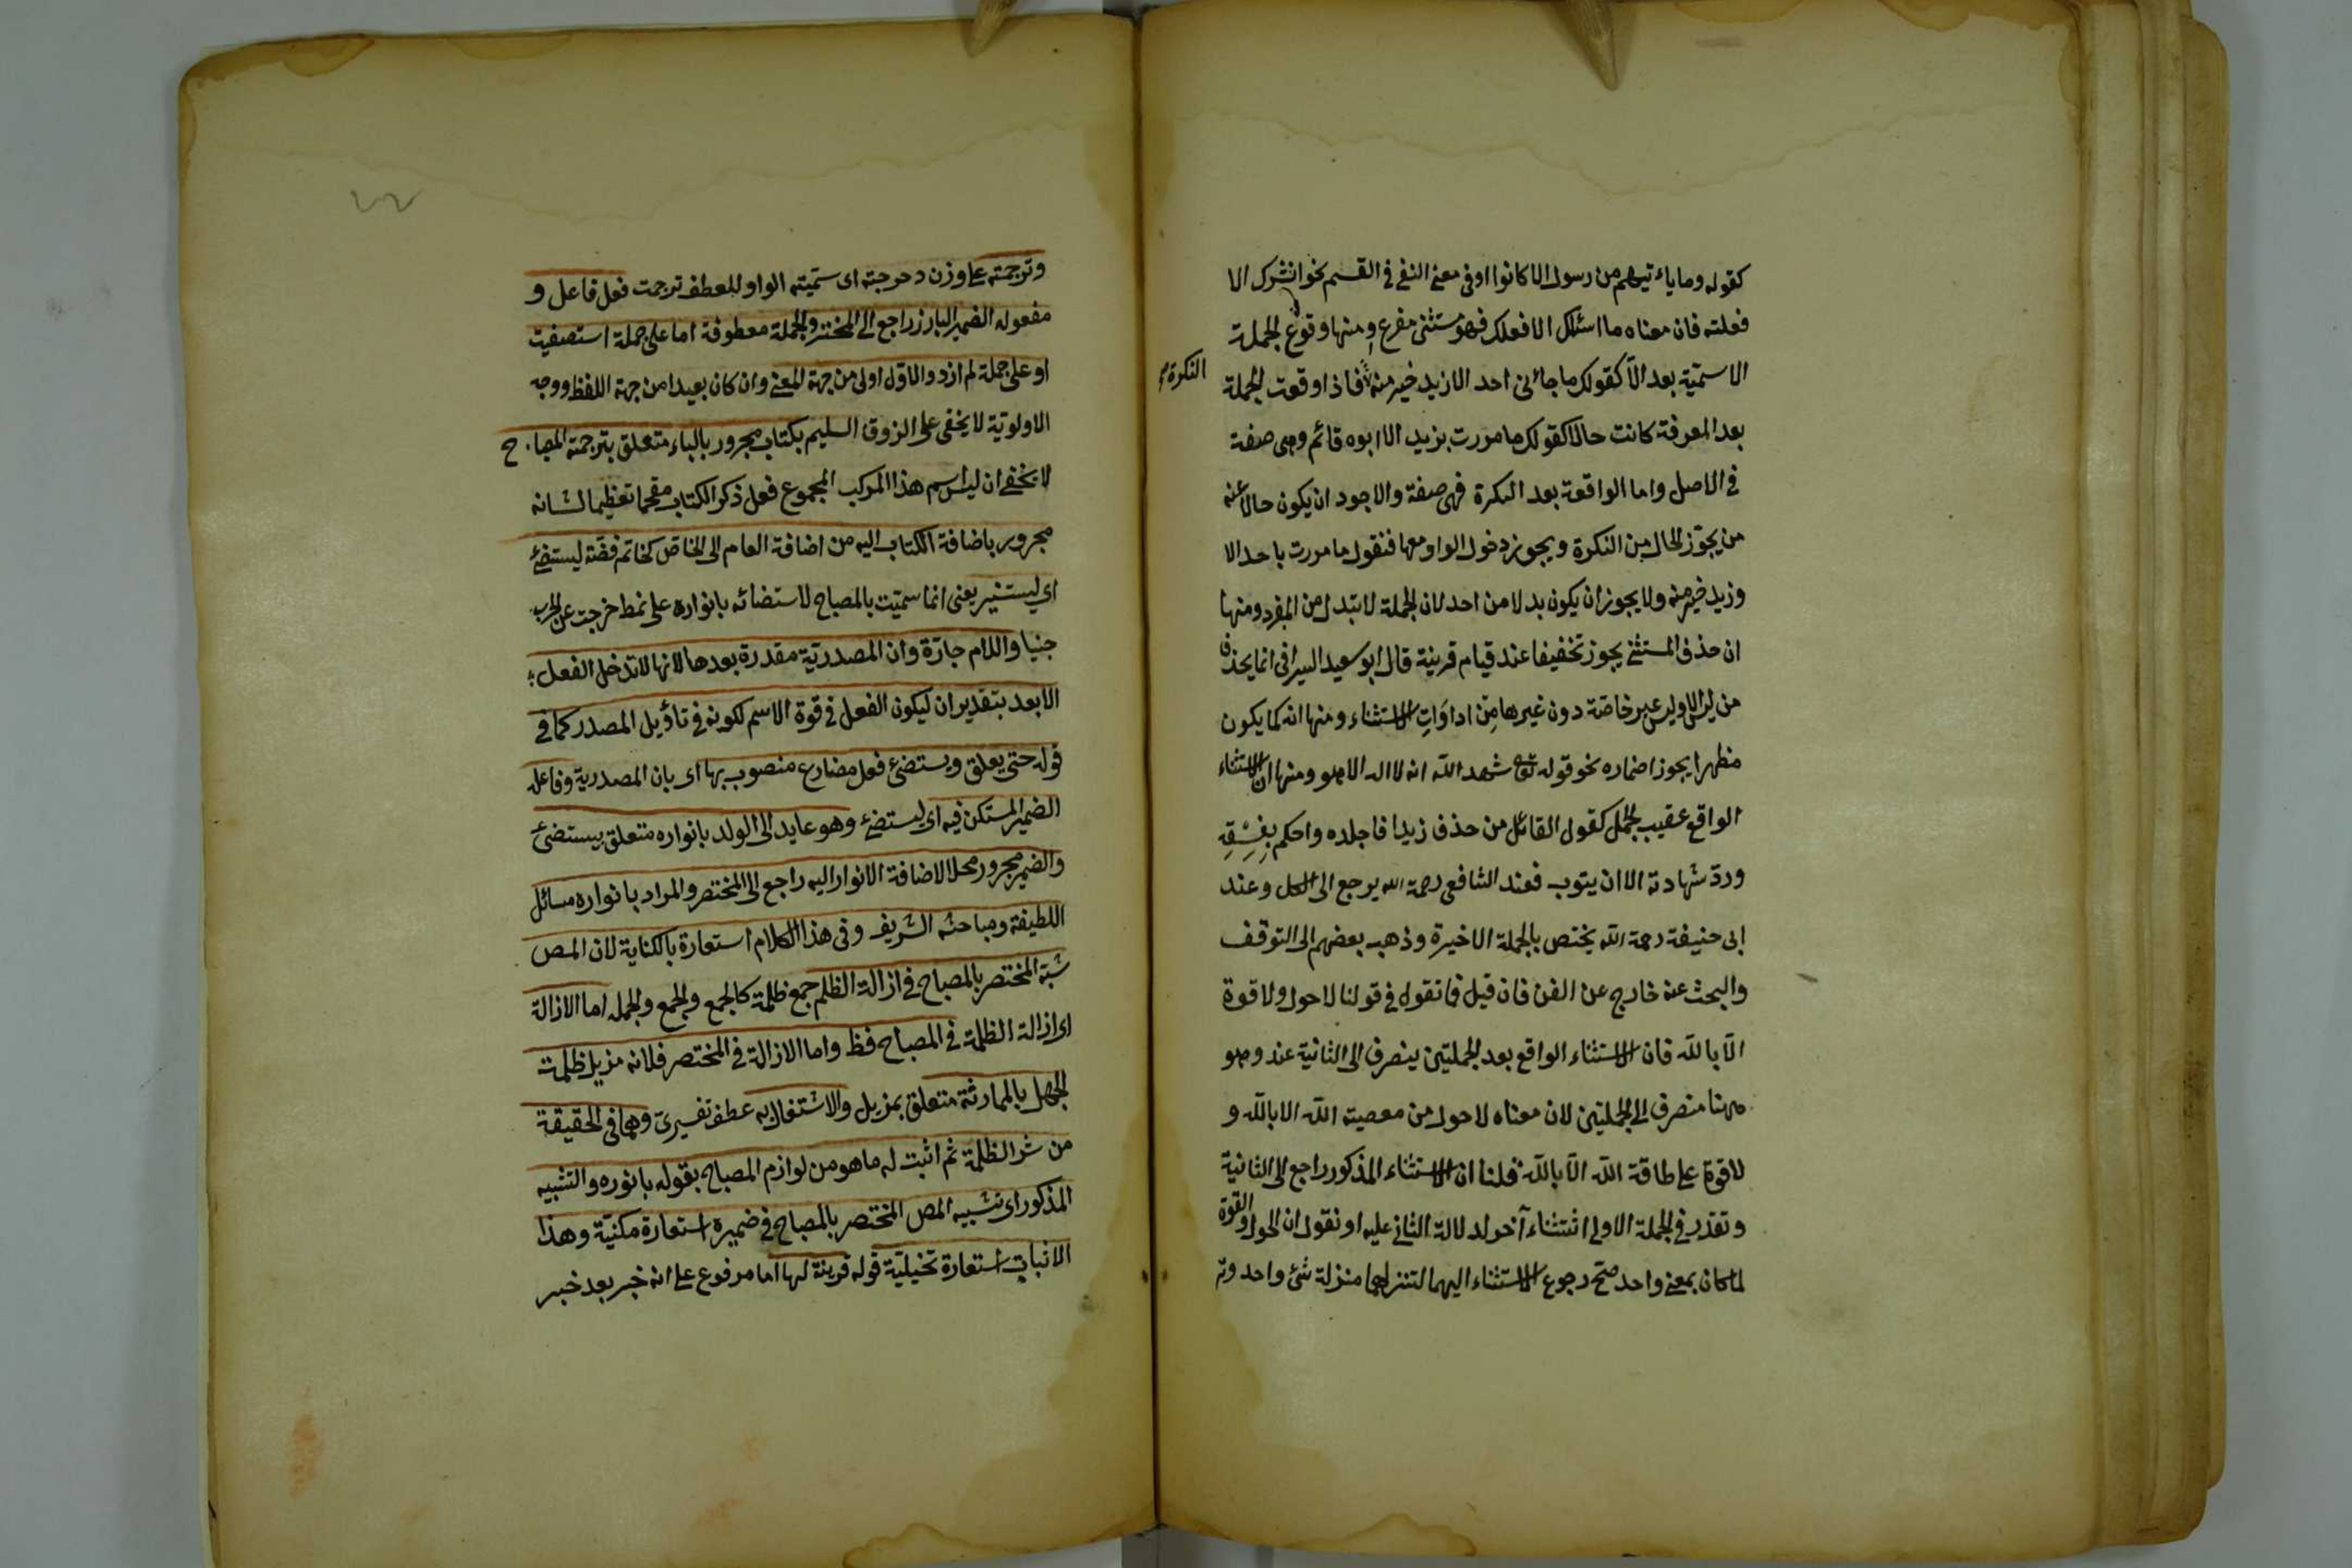 كقوله وما يأتيهم من رسول الا كانوا او فى معنى النفى فى القسم نحو انشدك الا
فعلته فان معناه ما اسئلك الا فعلك فهو مستثنى مفرغ ومنها وقوع الجملة
الاسمية بعد الّا كقولك ما جائنى احد الا زيد خير منه فاذا وقعت الجملة
النكرة
بعد المعرفة كانت حالا كقولك ما مررت بزيد الا ابوه قائم وهى صفة
فى الاصل واما الواقعة بعد النكرة فهى صفة والاجود ان يكون حالا عنه
من يجوّز الحال من النكرة ويجوز دخول الواو معها فنقول ما مررت باحد الا
وزيد خير منه ولا يجوز ان يكون بدلا من احد لان الجملة لا تبدل من المفرد ومنها
ان حذف المستثنى يجوز تخفيفا عند قيام قرينة قال ابو سعيد السيرافى انما يحذف
من ليس الا وليس غير خاصّة دون غيرها مِن ادوَاتِ الاستثناء ومنها انه كما يكون
مظهرا يجوز اضماره نحو قوله تع شهد الله انه لا اله الا هو ومنها ان الاستثناء
الواقع عقيب الجمل كقول القائل من حذف زيدا فاجلده واحكم بفِسْقِهِ
وردّ شهادته الا ان يتوب فعند الشافعى رحمة الله يرجع الى الكل وعند
ابى حنيفة رحمة الله يختص بالجملة الاخيرة وذهب بعضهم الى التوقف
والبحث عنه خارج عن الفن فان قيل فما تقول فى قولنا لا حول ولا قوة
الّا بالله فان الاستثناء الواقع بعد الجملتين ينصرف الى الثانية عند وهو
ههنا منصرف الى الجملتين لان معناه لا حول من معصية الله الا بالله و
لا قوة على طاقة الله الّا بالله قلنا ان الاستثناء المذكور راجع الى الثانية
وتقدر فى الجملة الاولى استثناء آخر لدلالة الثانى عليه او نقول ان الحول والقوة
لما كان بمعنى واحد صحّ رجوع الاستثناء اليهما لتنزلهما منزلة شئ واحد وتر
وترجمته على وزن دحرجته اى سمّيته الواو للعطف ترجمت فعل فاعل و
مفعوله الضمير البارز راجع الى المختصر والجملة معطوفة اما على جملة استصفيت
او على جملة لم ازد والاوّل اولى من جهة المعنى وان كان بعيدا من جهة اللفظ ووجه
الاولوية لا يخفى على الزوق السليم بكتاب مجرور بالباء متعلق بترجمته المصباح
لا يخفى ان ليس اسم هذا المركب المجموع فعلى ذكر الكتاب مقحما تعظيما لشانه
مجرور باضافة الكتاب اليه من اضافة العام الى الخاص كخاتم فضّة ليستضئ
اى ليستنير يعنى انما سميّت بالمصباح لاستضائه بانواره على نمط خرجت عن الحرب
جنيا واللام جارّة وان المصدريّة مقدرة بعدها لانها لا تدخل الفعل
الا بعد بتقدير ان ليكون الفعل فى قوة الاسم لكونه فى تأويل المصدر كما فى
قوله حتى يعلق ويستضئ فعل مضارع منصوب بها اى بان المصدرية وفاعله
الضمير المستكن فيه اى ليستضئ وهو عايد الى الولد بانواره متعلق بيستضئ
والضمير مجرور محلا لاضافة الانوار اليه راجع الى المختصر والمراد بانواره مسائل
اللطيفة ومباحثه الشريف وفى هذا الكلام استعارة بالكناية لان المص
شبّه المختصر بالمصباح فى ازالة الظلم جمع ظلمة كالجمع والجمع والجمله اما الازالة
اى ازالة الظلمة فى المصباح فظ واما الازالة فى المختصر فلانه مزيل ظلمت
الجهل بالممارثة متعلق بمزيل والاشتغال به عطف تفسيرى وهما فى الحقيقة
من شر الظلمة ثم اثبت له ما هو من لوازم المصباح بقوله بانوره والتشبيه
المذكور اى تشبيه المص المختصر بالمصباح فى ضميره استعارة مكنيّة وهذا
الاثبات استعارة تخيليّة قوله قرينة لها اما مرفوع على انه خبر بعد خبر